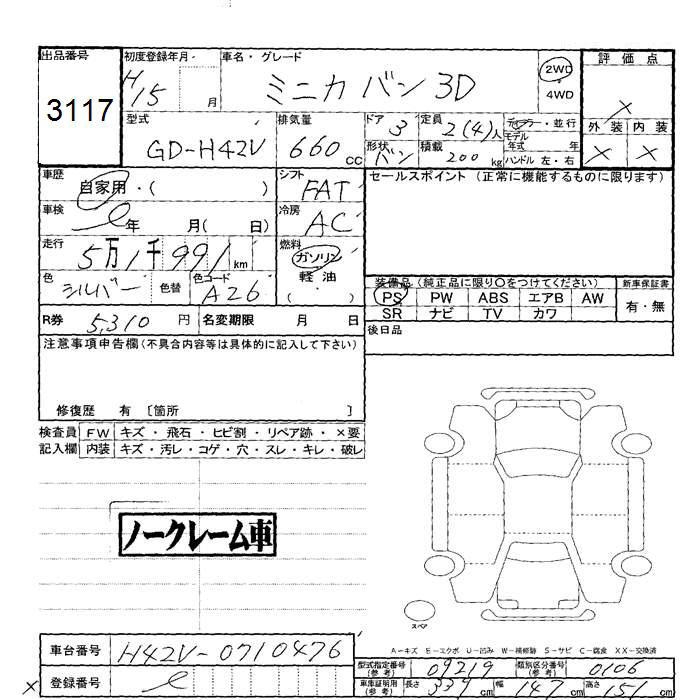 出品番号
3117
初度登録年月
H15 月
車名・グレード
ミニカバン 3D
2WD
4WD
評価点
×
外装 内装
× ×
型式
GD-H42V
排気量
660 cc
ドア
3
形状
バン
定員
2(4)人
積載
200 kg
ディーラー・並行
モデル
年式 年
ハンドル 左・右
車歴
自家用・( )
シフト
FAT
車検
年 月( 日)
冷房
AC
走行
5万1千991km
燃料
ガソリン
軽油
( )
色
シルバー
色替
色コード
A26
R券 5,310 円
名変期限 月 日
セールスポイント (正常に機能するものに限ります)
装備品 (純正品に限り○をつけてください)
新車保証書
PS PW ABS エアB AW
SR ナビ TV カワ
有・無
後日品
注意事項申告欄(不具合内容等は具体的に記入して下さい)
修復歴 有 〔箇所 〕
検査員
記入欄
FW キズ・飛石・ヒビ割・リペア跡・×要
内装 キズ・汚レ・コゲ・穴・スレ・キレ・破レ
ノークレーム車
スペア
A-キズ E-エクボ U-凹み W-補修跡 S-サビ C-腐食 XX-交換済
車台番号 H42V-0710476
登録番号
×
型式指定番号
(参考)
09219
類別区分番号
(参考)
0106
車庫証明用
(参考)
長さ 339 cm 幅 147 cm 高さ 151 cm